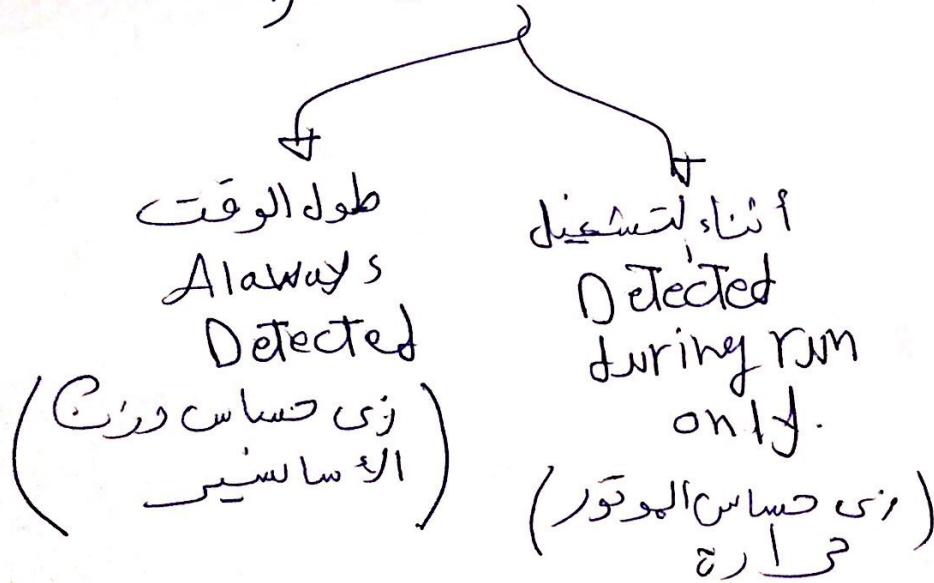 طول الوقت
Alaways
Detected
(زى حساس وزن
الأسانسير)
أثناء التشغيل
Detected
during run
only.
(زى حساس الموتور
حرارة)